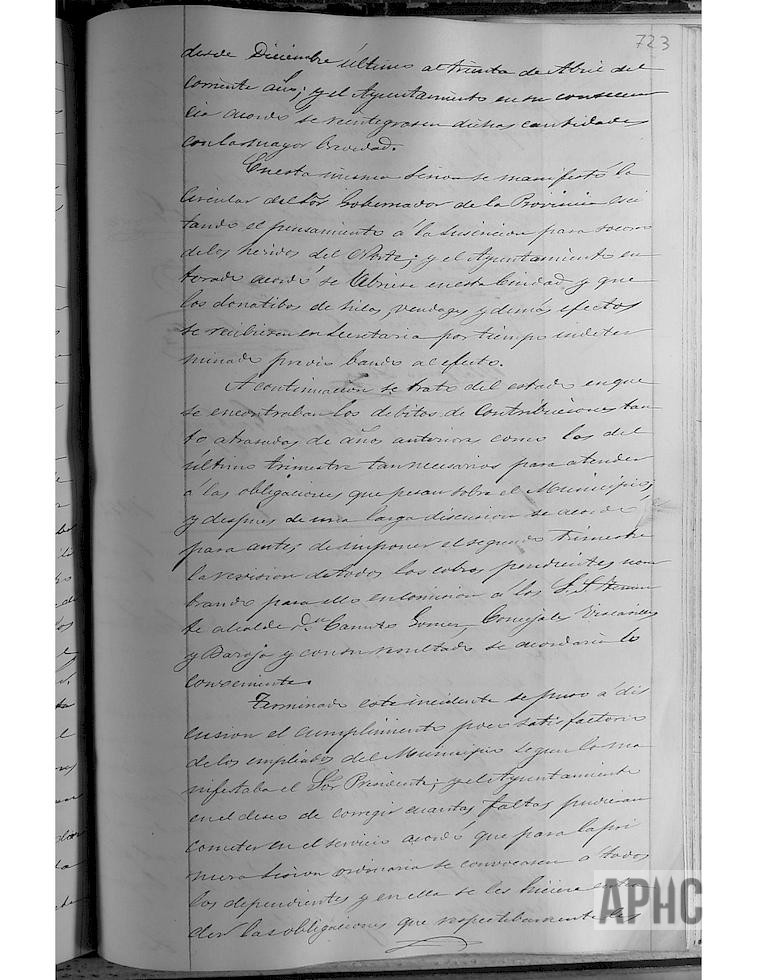 723
desde Diciembre último al treinta de Abril del
corriente año; y el Ayuntamiento en su consecuen
cia acordó se reintegrasen dichas cantidades
con la mayor brevedad.
En esta misma sesion se manifestó la
Circular del Sor Gobernador de la Provincia esci
tando el pensamiento á la suscricion para socorro
de los heridos del Norte; y el Ayuntamiento en
terado acordó se abriese en esta Ciudad y que
los donatibos de hilas, vendages y demás efectos
se recibiesen en Secretaria por tiempo indeter
minado previo bando al efecto.
A continuacion se trató del estado en que
se encontraban los debitos de Contribuciones tan
to atrasadas de años anteriores como las del
último trimestre tan necesarios para atender
á las obligaciones que pesan sobre el Municipio;
y despues de una larga discusion se acordó
para antes de imponer el segundo trimestre
la revision de todos los cobros pendientes nom
brando para ello en comision á los S.S. Tenien
te alcalde Dn Canuto Gomez, Concejales
y Baroja y con su resultado se acordaria lo
conveniente.
Terminado este incidente se puso á dis
cusion el cumplimiento poco satisfactorio
de los empleados del Municipio segun lo ma
nifestaba el Sor Presidente; y el Ayuntamiento
en el deseo de corregir cuantas faltas pudieran
cometer en el servicio acordó que para la pri
mera sesion ordinaria se convocasen a todos
los dependientes y en ella se les hiciera enten
der las obligaciones que respectibamente les
APHC